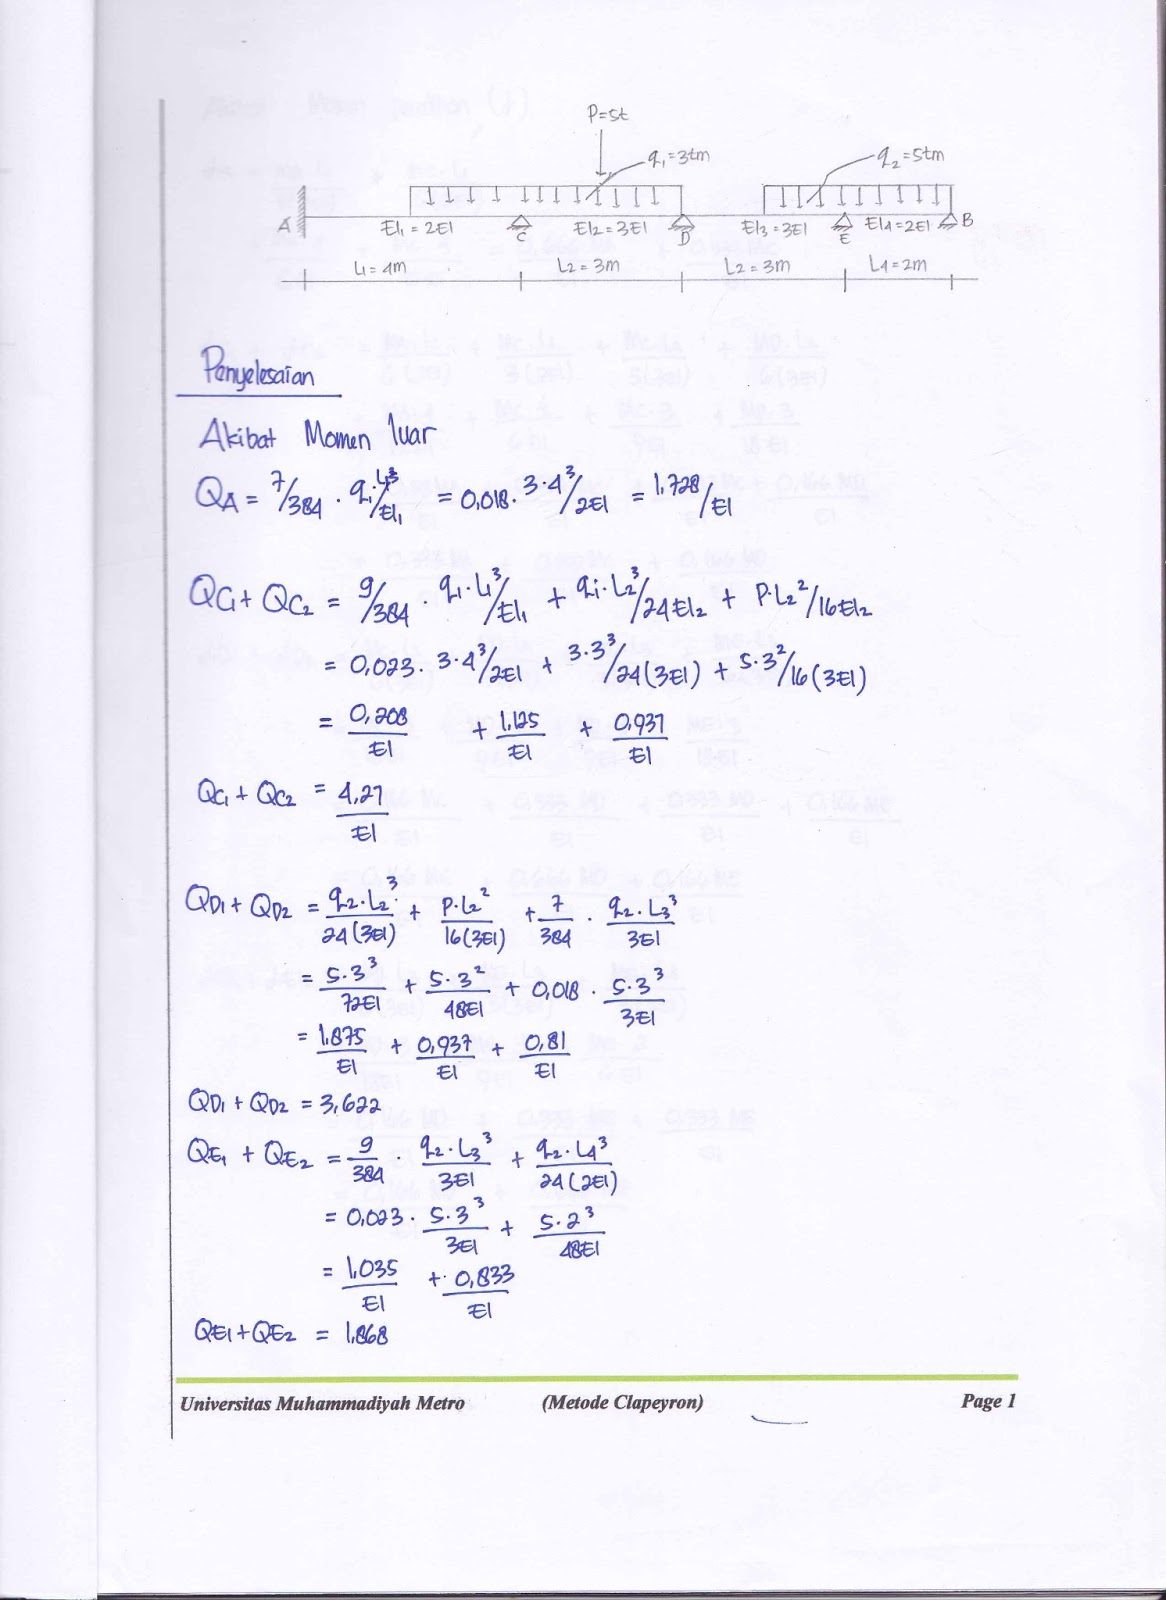 P=5t
q₁=3tm
q₂=5tm
A
EI₁=2EI
C
EI₂=3EI
D
EI₃=3EI
E
EI₄=2EI
B
L₁=4m
L₂=3m
L₂=3m
L₄=2m
Penyelesaian
Akibat Momen luar
QA = 7/384 . q₁.L₁³/EI₁ = 0,018. 3.4³/2EI = 1,728/EI
QC₁ + QC₂ = 9/384 . q₁.L₁³/EI₁ + q₁.L₂³/24EI₂ + P.L₂²/16EI₂
= 0,023. 3.4³/2EI + 3.3³/24(3EI) + 5.3²/16(3EI)
= 0,208/EI + 1,125/EI + 0,937/EI
QC₁ + QC₂ = 4,27/EI
QD₁ + QD₂ = q₂.L₂³/24(3EI) + P.L₂²/16(3EI) + 7/384 . q₂.L₃³/3EI
= 5.3³/72EI + 5.3²/48EI + 0,018 . 5.3³/3EI
= 1,875/EI + 0,937/EI + 0,81/EI
QD₁ + QD₂ = 3,622
QE₁ + QE₂ = 9/384 . q₂.L₃³/3EI + q₂.L₄³/24(2EI)
= 0,023 . 5.3³/3EI + 5.2³/48EI
= 1,035/EI + 0,833/EI
QE₁+QE₂ = 1,868
Universitas Muhammadiyah Metro (Metode Clapeyron) Page 1